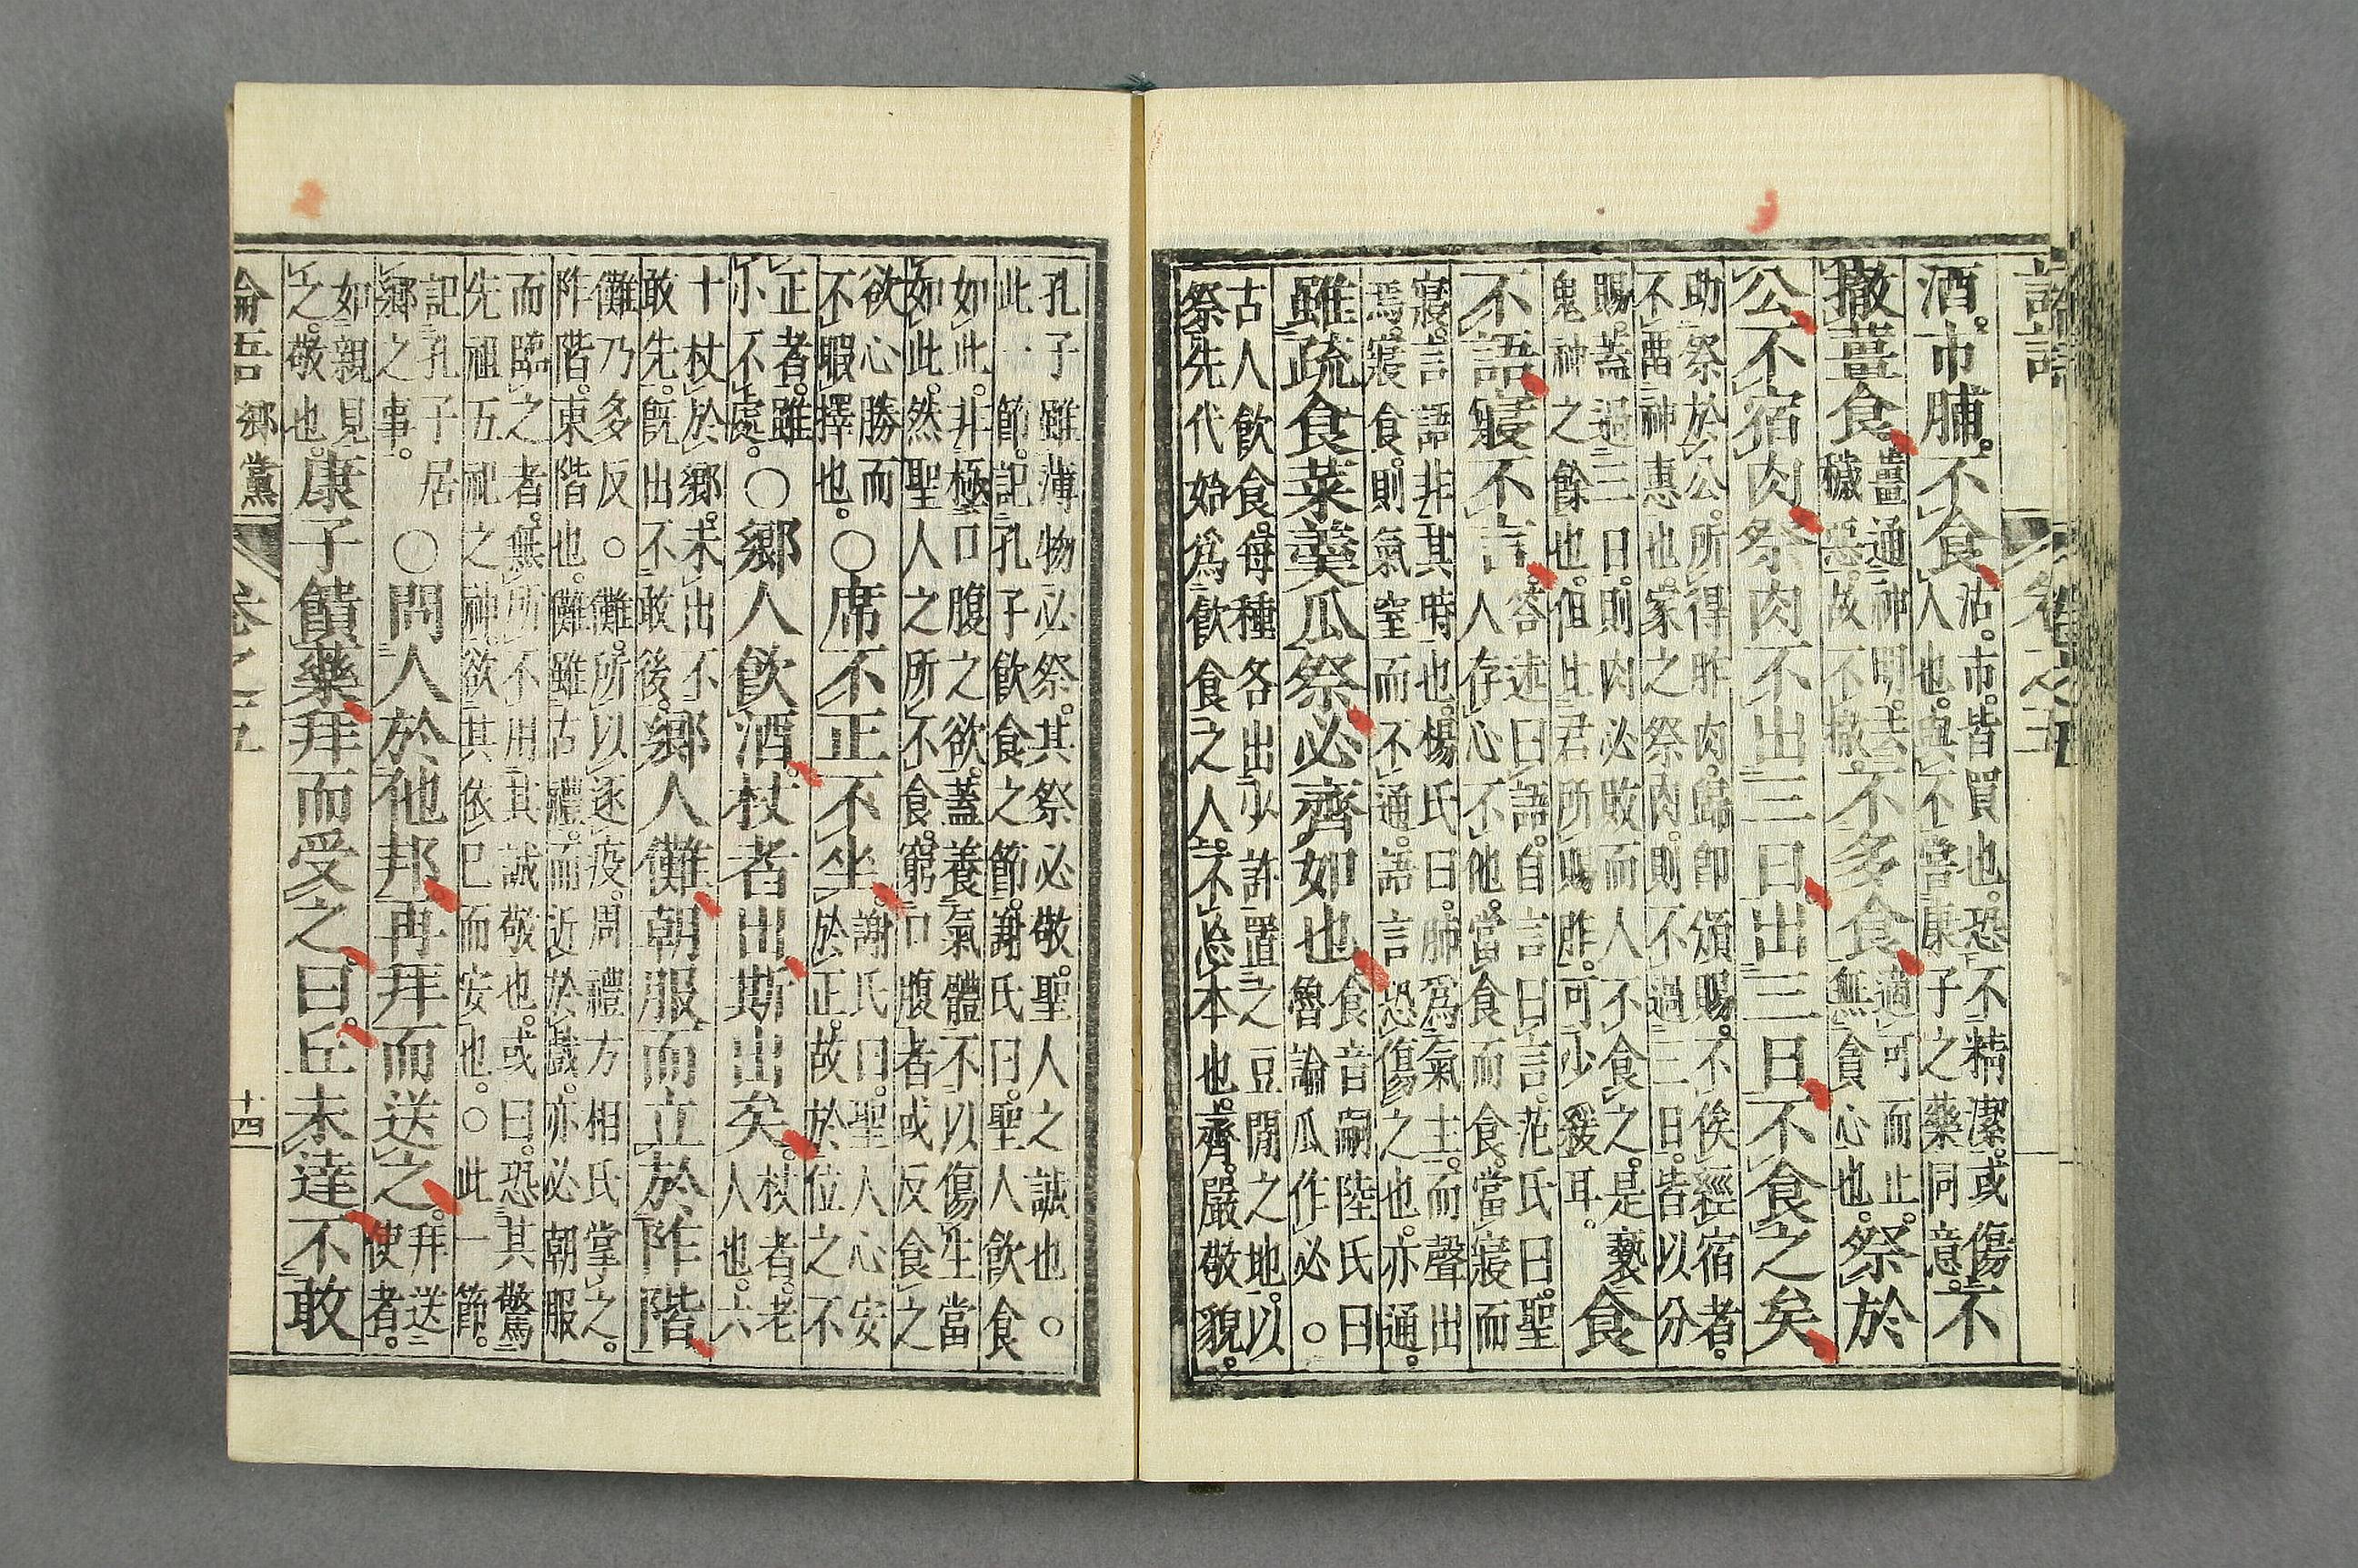 論語 卷之五
酒。市脯。不食沽。市。皆買也。恐不精潔。或傷人也。與不嘗康子之藥同意。不
撤薑食薑通神明。去穢惡。故不撤。不多食適可而止。無貪心也。祭於
公不宿肉祭肉不出三日出三日不食之矣
助祭於公。所得胙肉。歸卽頒賜。不俟經宿者。不畱神惠也。家之祭肉。則不過三日。皆以分
賜。蓋過三日。則肉必敗而人不食之。是褻鬼神之餘也。但比君所賜胙。可少緩耳。食
不語寢不言答述曰語。自言曰言。范氏曰。聖人存心不他。當食而食。當寢而
寢。言語非其時也。楊氏曰。肺爲氣主。而聲出焉。寢食則氣窒而不通。語言恐傷之也。亦通。
雖疏食菜羹瓜祭必齊如也食音嗣陸氏曰魯論瓜作必○
古人飮食。每種各出少許。置之豆閒之地。以祭先代始爲飮食之人。不忘本也。齊。嚴敬貌。
孔子雖薄物必祭。其祭必敬。聖人之誠也○此一節。記孔子飮食之節。謝氏曰。聖人飮食
如此。非極口腹之欲。蓋養氣體。不以傷生當如此。然聖人之所不食。窮口腹者或反食之
欲心勝而不暇擇也。○席不正不坐謝氏曰。聖人心安於正。故於位之不
正者。雖小不處。○鄉人飮酒。杖者出斯出矣。杖者。老人也。六
十杖於鄉。未出不敢先。旣出不敢後。鄉人儺朝服而立於阼階
儺乃多反○儺。所以逐疫。周禮方相氏掌之。阼階。東階也。儺雖古禮。而近於戲。亦必朝服
而臨之者。無所不用其誠敬也。或曰。恐其驚先祖五祀之神。欲其依己而安也。○此一節。
記孔子居鄉之事。○問人於他邦再拜而送之。拜送使者。
如親見之。敬也。康子饋藥拜而受之。曰。丘未達不敢
論語 鄉黨 卷之五 十四